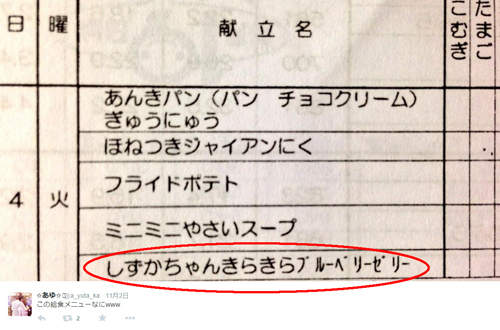 日 曜 献立名 こむぎ たまご
あんきパン(パン チョコクリーム)
ぎゅうにゅう
ほねつきジャイアンにく
フライドポテト
4 火
ミニミニやさいスープ
しずかちゃんきらきらブルーベリーゼリー
☆あゆ☆ 11月2日
この給食メニューなにwww
2